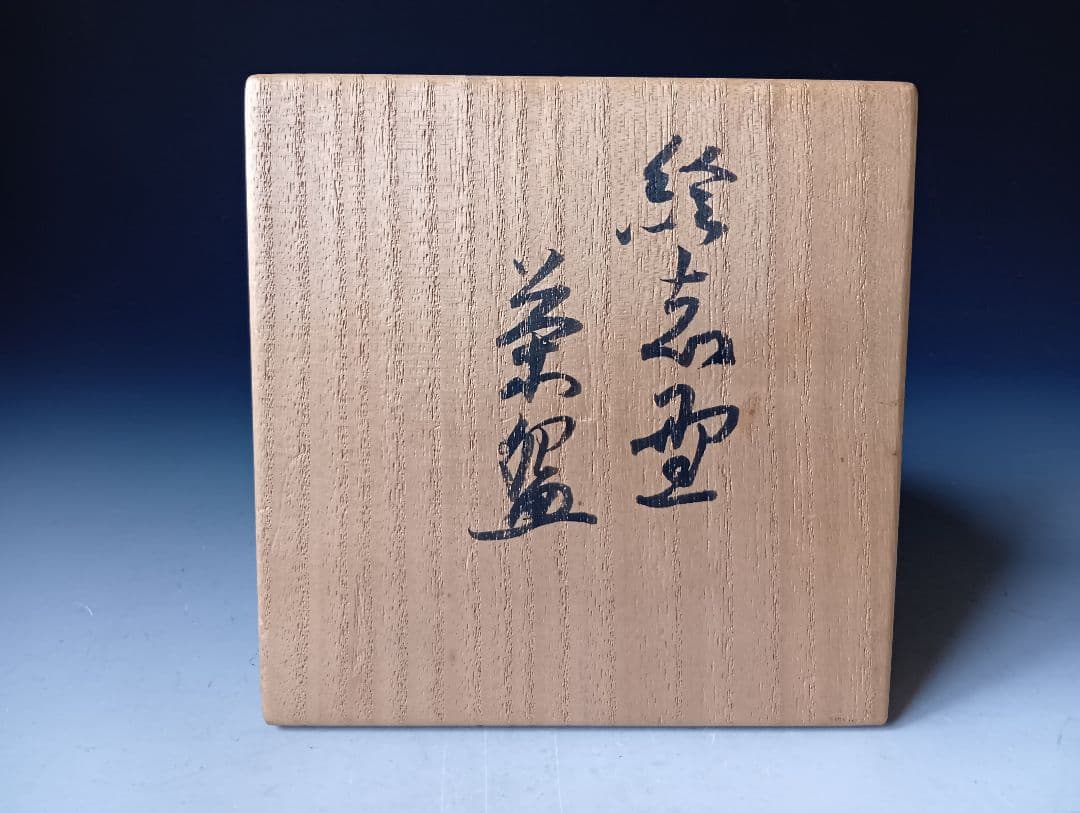 絵志野
茶盌